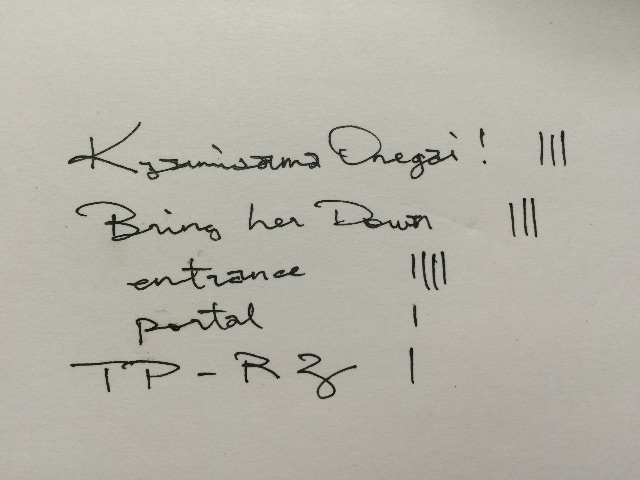 Kyzamisama Onegai! |||
Bring her Down |||
entrance ||||
portal |
TP-RZ |